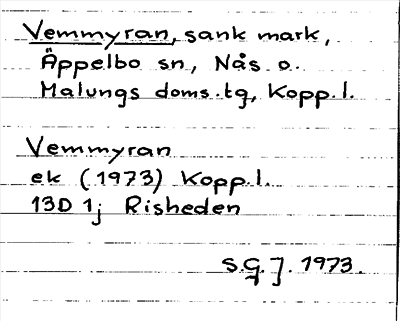 Vemmyran, sank mark,
Äppelbo sn, Nås o.
Malungs doms.tg, Kopp.l.
Vemmyran
ek (1973) Kopp.l.
13D 1j Risheden
S.G.J. 1973.